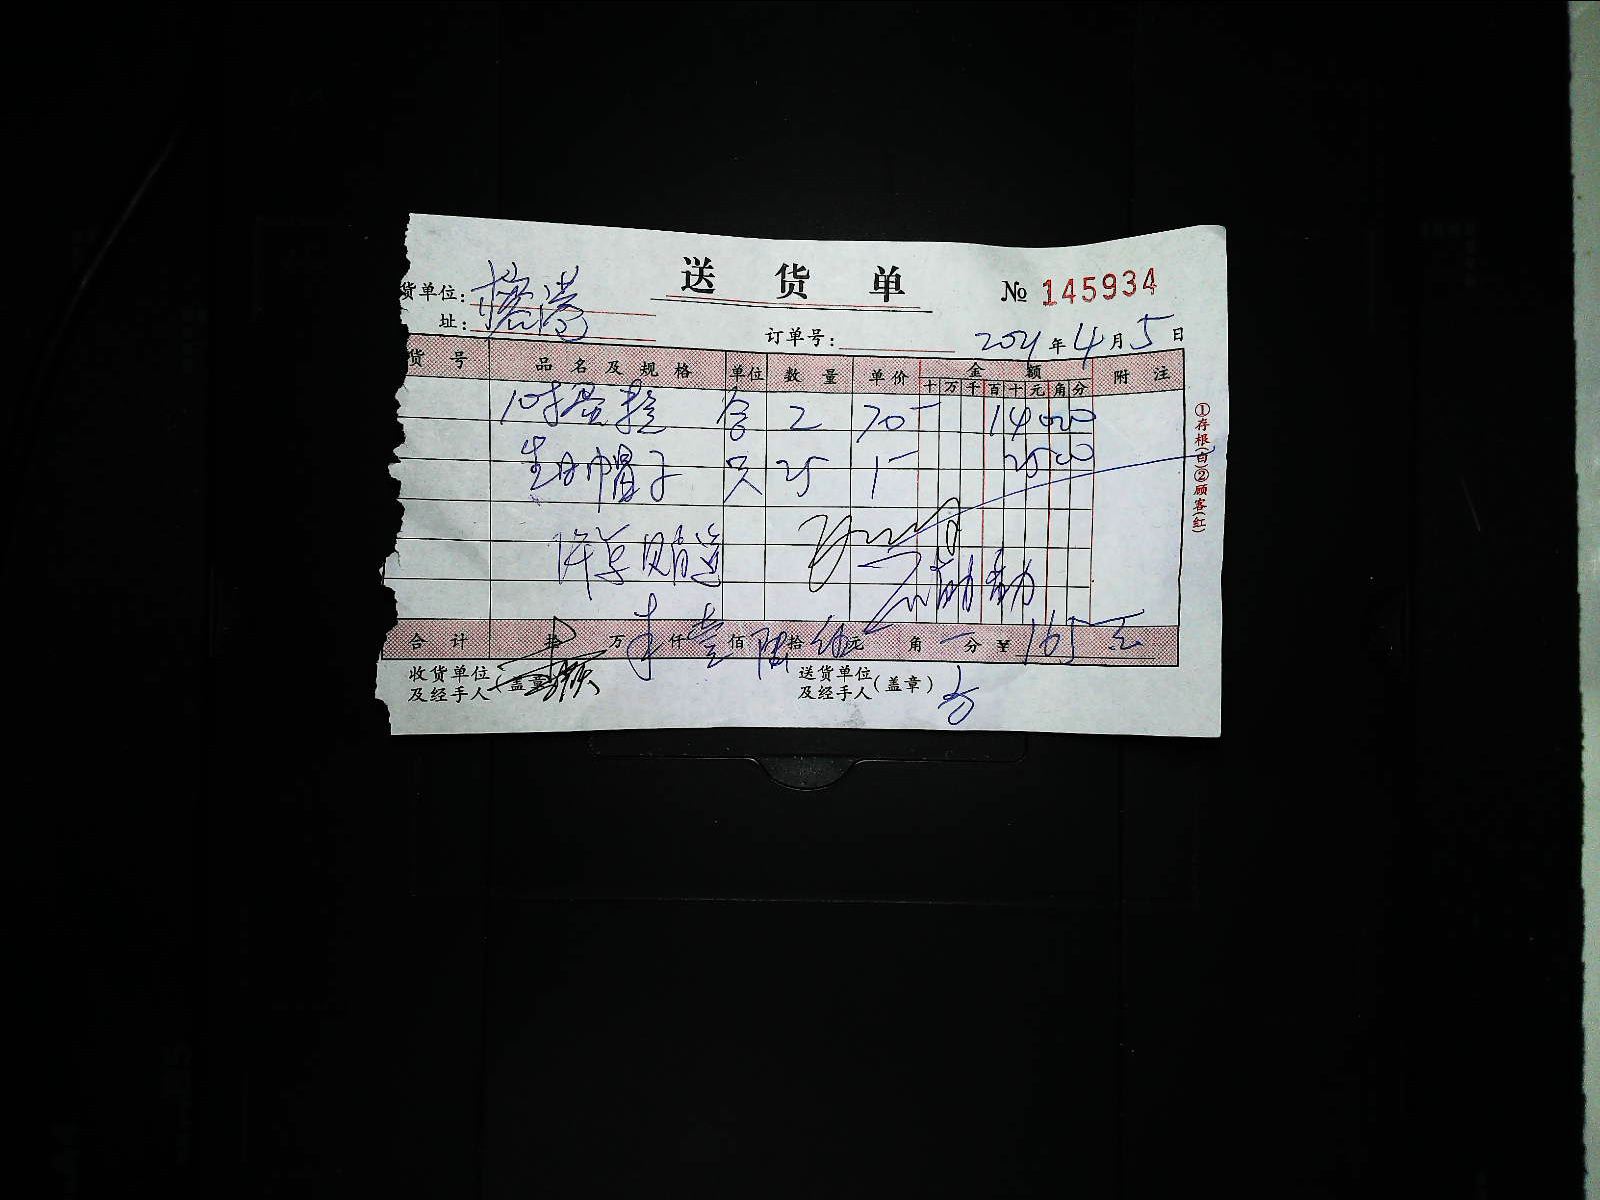 送货单 № 145934
货单位：
址： 订单号： 2021年4月5日
货号 品名及规格 单位 数量 单价 金额 附注
十万千百十元角分
10寸蛋糕 合 2 70- 14000
生日帽子 只 25 1- 2500
活动
合计 拾 万 仟 壹 佰 陆 拾 伍 元 角 分 ¥ 165元
收货单位及经手人（盖章） 送货单位及经手人（盖章）
①存根（白）②顾客（红）